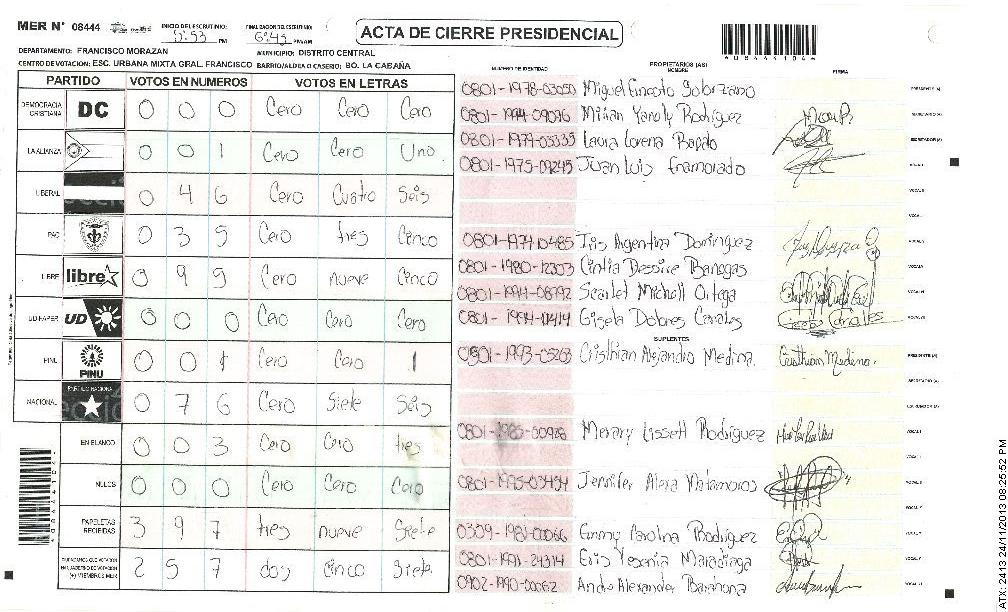 MER N° 08444
INICIO DEL ESCRUTINIO: 5:53 PM
FINALIZACION DEL ESCRUTINIO: 6:45 PM/AM
ACTA DE CIERRE PRESIDENCIAL
DEPARTAMENTO: FRANCISCO MORAZAN
MUNICIPIO: DISTRITO CENTRAL
CENTRO DE VOTACION: ESC. URBANA MIXTA GRAL. FRANCISCO BARRIO/ALDEA O CASERIO: BO. LA CABAÑA
PARTIDO VOTOS EN NUMEROS VOTOS EN LETRAS
DEMOCRACIA CRISTIANA DC 0 0 0 Cero Cero Cero
LA ALIANZA 0 0 1 Cero Cero Uno
LIBERAL 0 4 6 Cero Cuatro Seis
PAC 0 3 5 Cero tres Cinco
LIBRE libre 0 9 5 Cero nueve Cinco
UD FAPER UD 0 0 0 Cero Cero Cero
PINU PINU 0 0 1 Cero Cero 1
NACIONAL PARTIDO NACIONAL 0 7 6 Cero Siete Seis
EN BLANCO 0 0 3 Cero Cero tres
NULOS 0 0 0 Cero Cero Cero
PAPELETAS RECIBIDAS 3 9 7 tres nueve Siete
CIUDADANOS QUE VOTARON EN CUADERNO DE VOTACION (+) MIEMBROS MER 2 5 7 dos Cinco Siete
NUMERO DE IDENTIDAD PROPIETARIOS (AS) NOMBRE FIRMA
0801-1978-03050 Miguel PRESIDENTE (A)
0801-1994-09096 Yanoly Rodriguez SECRETARIO (A)
0801-1979-03335 Laura Lorena ESCRUTADOR (A)
0801-1975-09245 Juan Luis Enamorado VOCAL I
VOCAL II
VOCAL III
0801-1974-10485 Iris Argentina Dominguez VOCAL IV
0801-1980-12303 Cintia Desiire Banegas VOCAL V
0801-1994-08792 Scarlet Michell Ortega VOCAL VI
0801-1994-01414 Gisela Dolores Canales VOCAL VII
SUPLENTES
0801-1993-05263 Cristhian Alejandro Medina. Cristhian Medina. PRESIDENTE (A)
SECRETARIO (A)
ESCRUTADOR (A)
0801-1985-00928 Merary Lissett Rodriguez VOCAL I
VOCAL II
0801-1995-03454 Jennifer Alexa Matamoros VOCAL III
VOCAL IV
0309-1981-00066 Emmy Carolina Rodriguez VOCAL V
0801-1991-24314 Eris Yesenia Maradiaga VOCAL VI
0902-1990-00062 Andre Alexander Barahona VOCAL VII
ATX-2413 24/11/2013 08:25:52 PM